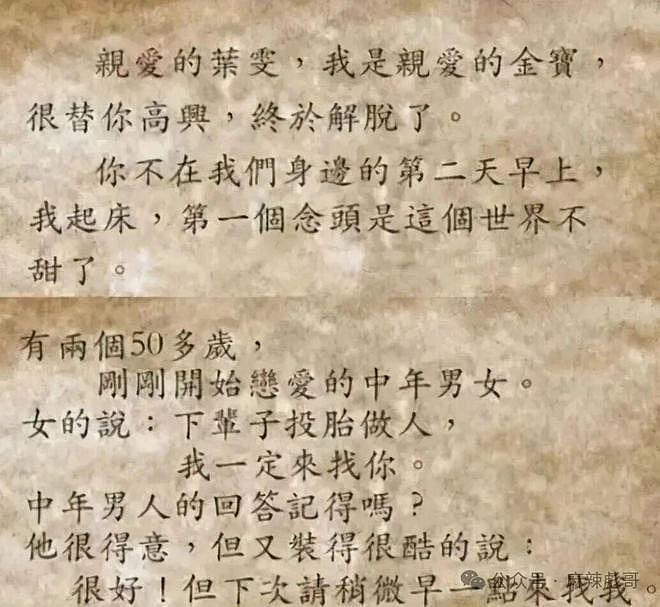 親愛的葉雯，我是親愛的金寶，
很替你高興，終於解脫了。
你不在我們身邊的第二天早上，
我起床，第一個念頭是這個世界不
甜了。
有兩個50多歲，
剛剛開始戀愛的中年男女。
女的說：下輩子投胎做人，
我一定來找你。
中年男人的回答記得嗎？
他很得意，但又裝得很酷的說：
很好！但下次請稍微早一點來找我。
公众号·麻辣戯哥